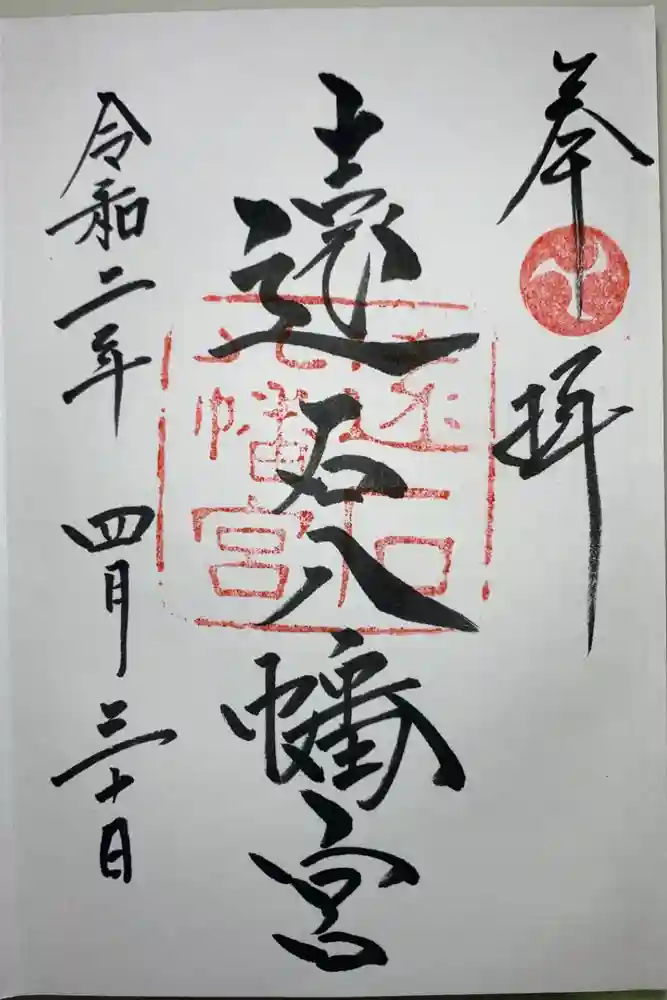 奉拝
遠石八幡宮
令和二年四月三十日
遠石
八幡宮